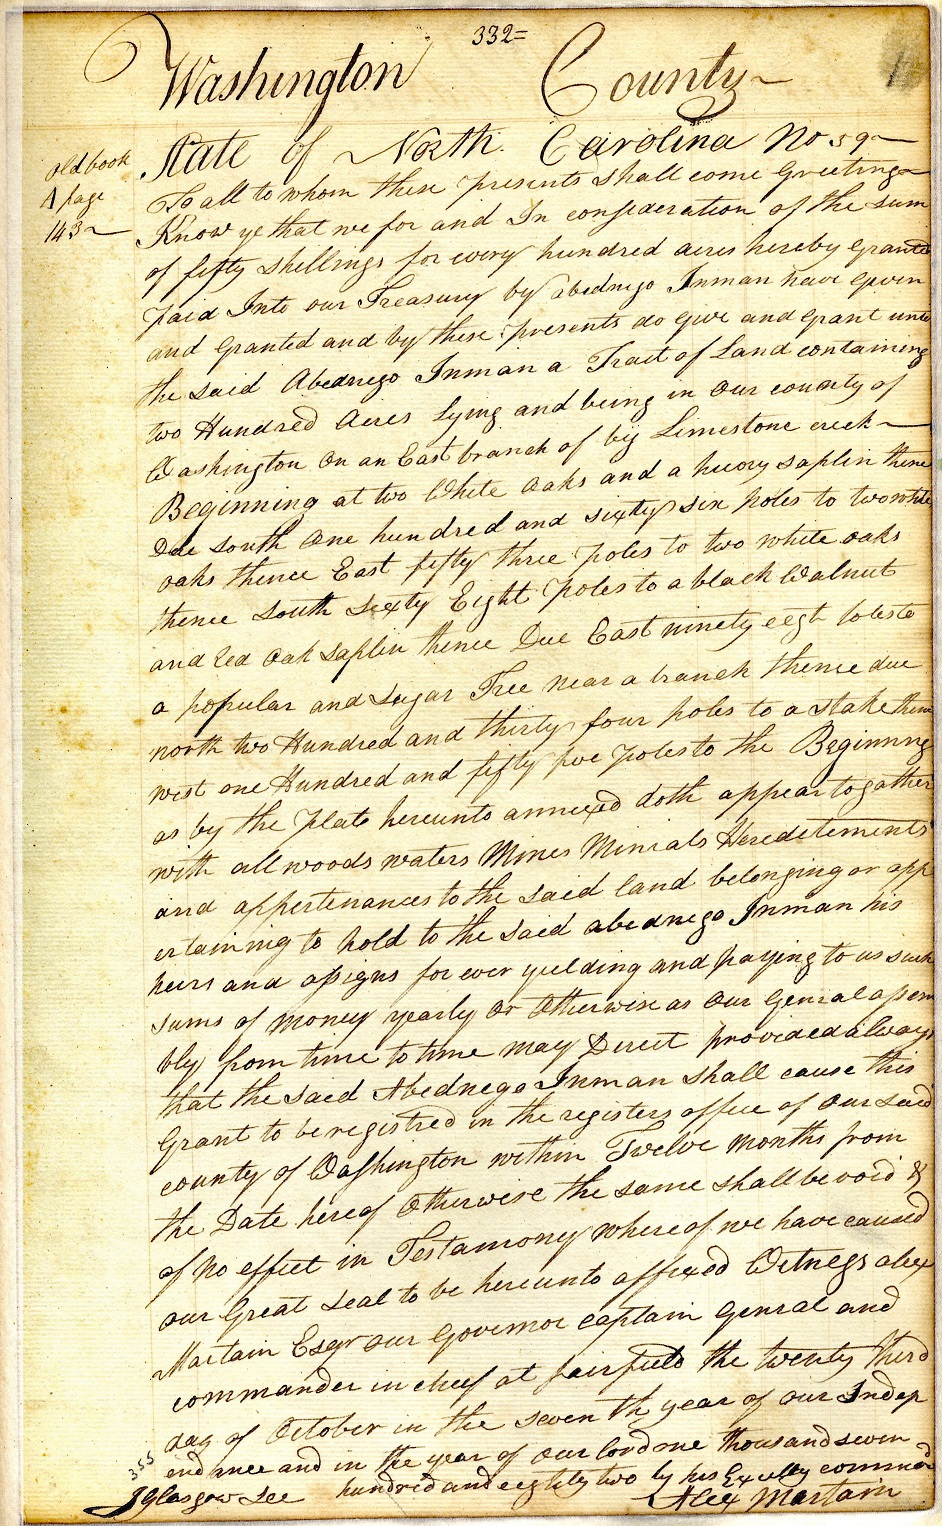 332=
Washington County
State of North Carolina No 59
old book
A page
143
To all to whom these presents shall come Greeting
Know ye that we for and In consideration of the sum
of fifty shillings for every hundred acres hereby Granted
paid Into our Treasury by abednego Inman have given
and Granted and by these presents do give and grant unto
the said Abednego Inman a Tract of Land containing
two Hundred Acres lying and being in our county of
Washington on an East branch of big Limestone creek
Beginning at two White Oaks and a hicory saplin thence
Due south One hundred and sixty six poles to two white
oaks thence East fifty three poles to two white oaks
thence South Sixty Eight poles to a black Walnut
and Red Oak Saplin thence Due East ninety eegt poles to
a popular and Sugar Tree near a branch thence due
north two Hundred and thirty four poles to a stake thence
west one Hundred and fifty five poles to the Beginning
as by the plats hereunto annexed doth appear togather
with all woods waters Mines Minrals Hereditements
and appertinances to the said land belonging or app
ertaining to hold to the said abednego Inman his
heirs and assigns for ever yielding and paying to us such
sums of money yearly or otherwise as our Genral assem
bly from time to time may Direct provided always
that the said Abednego Inman shall cause this
Grant to be registred in the registers office of our said
county of Washington within Twelve months from
the Date hereof Otherwise the same shall be void &
of no effect in Testamony whereof we have caused
our Great Seal to be hereunto affixed Witness alex
Martain Esqr our Governor captain Genral and
commander in cheef at fairfield the twenty third
day of October in the seventh year of our Indep
endance and in the year of our lord one thousand seven
355
hundred and eeghty two by his Excelly command
J Glasgow Sec Alex Martain